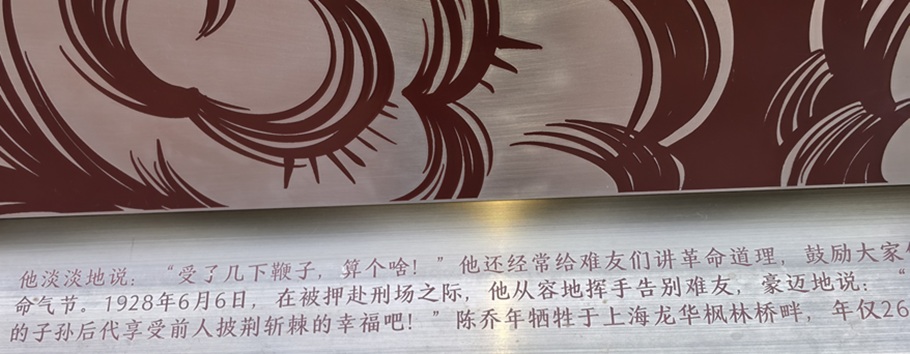 他淡淡地说：“受了几下鞭子，算个啥！”他还经常给难友们讲革命道理，鼓励大家
命气节。1928年6月6日，在被押赴刑场之际，他从容地挥手告别难友，豪迈地说：“
的子孙后代享受前人披荆斩棘的幸福吧！”陈乔年牺牲于上海龙华枫林桥畔，年仅26